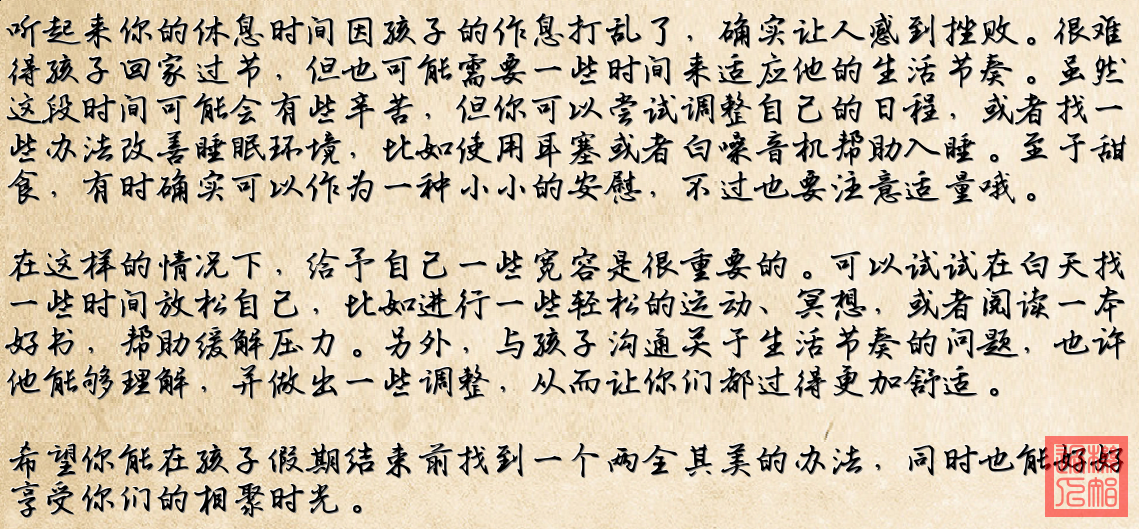 听起来你的休息时间因孩子的作息打乱了，确实让人感到挫败。很难
得孩子回家过节，但也可能需要一些时间来适应他的生活节奏。虽然
这段时间可能会有些辛苦，但你可以尝试调整自己的日程，或者找一
些办法改善睡眠环境，比如使用耳塞或者白噪音机帮助入睡。至于甜
食，有时确实可以作为一种小小的安慰，不过也要注意适量哦。
在这样的情况下，给予自己一些宽容是很重要的。可以试试在白天找
一些时间放松自己，比如进行一些轻松的运动、冥想，或者阅读一本
好书，帮助缓解压力。另外，与孩子沟通关于生活节奏的问题，也许
他能够理解，并做出一些调整，从而让你们都过得更加舒适。
希望你能在孩子假期结束前找到一个两全其美的办法，同时也能好好
享受你们的相聚时光。